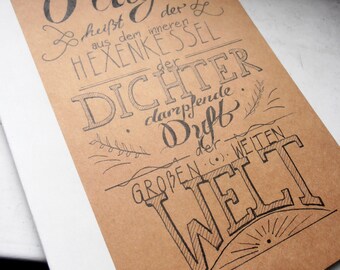 hußt der
aus dem inneren
HEXENKESSEL
der
DICHTER
dampfende
Duft
der
GROßEN WEITEN
WELT